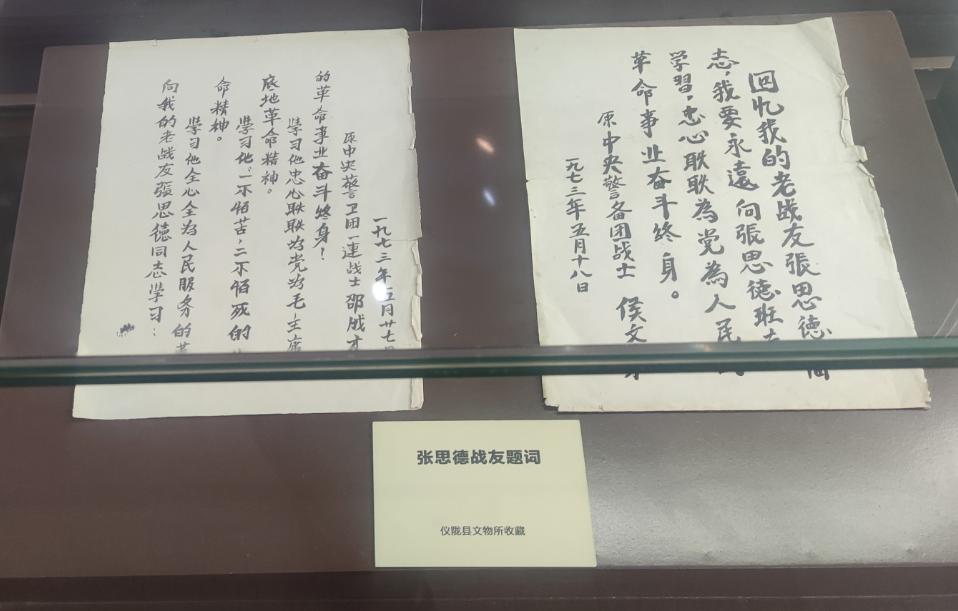 向我的老战友張思德同志学习：
学习他全心全为人民服务的
命精神。
学习他，一不怕苦，二不怕死的
底地革命精神。
学习他忠心耿耿为党为毛主席
的革命事业奋斗终身！
原中央警卫团一連战士 邵成才
一九七三年五月廿七日
回忆我的老战友張思德同
志，我要永遠向張思德班
学習，忠心耿耿為党為人民
革命事业奋斗终身。
原中央警备团战士 侯文
一九七三年五月十八日
张思德战友题词
仪陇县文物所收藏